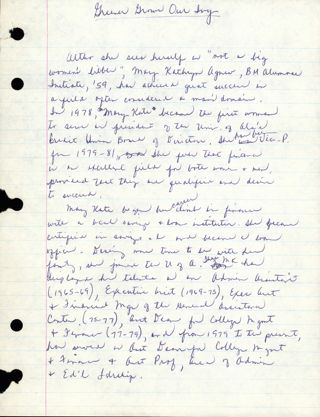 Greener Grows Our Ivy
Altho she sees herself as "not a big
women's libber", Mary Kathryn Agnew, BM Alumnae
Initiate, '59, has achieved great success in
a field often considered a man's domain.
In 1978, "Mary Kate" became the first woman
to serve as president of the Univ. of Ala's
Credit Union Board of Directors. She was Vice-P.
for 1979-81. She feels that finance
is an excellent field for both women & men,
provided that they are qualified and desire
to succeed.
Mary Kate began her career climb in finance
with a local savings & loan institution. She became
certified in savings & loan and became a loan
officer. Desiring more time to be with her
family, she joined the U of A. MK has
employed her talents as an Admin Assistant
(1965-69), Executive Asst (1969-75), Exec Asst
& Financial Mgr of the
Center (75-77), Asst Dean for College Mgmt
& Finance (77-79), and from 1979 to the present,
has served as Asst Dean for College Mgmt
& Finance & Asst Prof, Area of Admin
& Ed'l Ldrship.